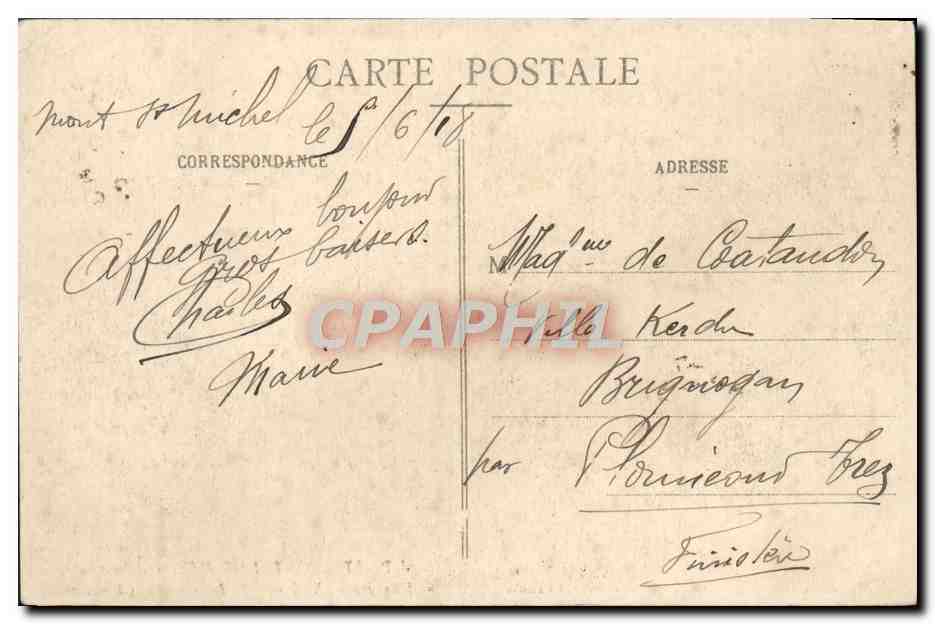 CARTE POSTALE
Mont St Michel le 5/6/18
CORRESPONDANCE
ADRESSE
Affectueux bonjour
Gros baisers.
Charles
Marie
de Coataudon
Villa Kerdu
Brignogan
par Plounéour Trez
Finistère
CPAPHIL